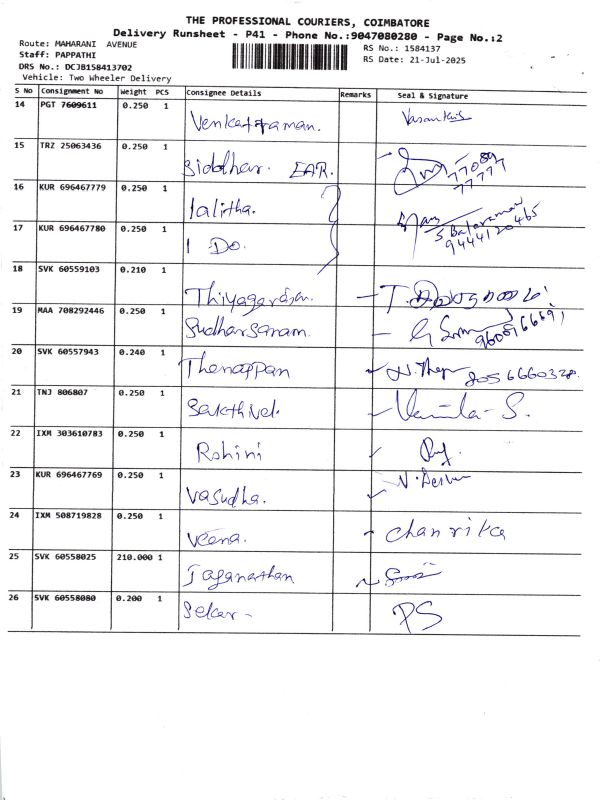 THE PROFESSIONAL COURIERS, COIMBATORE
Delivery Runsheet - P41 - Phone No.:9047080280 - Page No.:2
Route: MAHARANI AVENUE
Staff: PAPPATHI
DRS No.: DCJB158413702
Vehicle: Two Wheeler Delivery
RS No.: 1584137
RS Date: 21-Jul-2025
S No Consignment No Weight PCS Consignee Details Remarks Seal & Signature
14 PGT 7609611 0.250 1 Venkatraman.
15 TRZ 25063436 0.250 1 Siddhar. EAR. 77089
77777
16 KUR 696467779 0.250 1 lalitha.
S. Balaraman
9444120465
17 KUR 696467780 0.250 1 1 Do.
18 SVK 60559103 0.210 1 Thiyagarajan.
19 MAA 708292446 0.250 1 Sudharsanam.
20 SVK 60557943 0.240 1 Thenappan 8056660328.
21 TNJ 806807 0.250 1 Sakthivel.
22 IXM 303610783 0.250 1 Rohini
23 KUR 696467769 0.250 1 Vasudha.
24 IXM 508719828 0.250 1 Veena. chanrika
25 SVK 60558025 210.000 1 Jaganathan
26 SVK 60558080 0.200 1 Sekar - PS